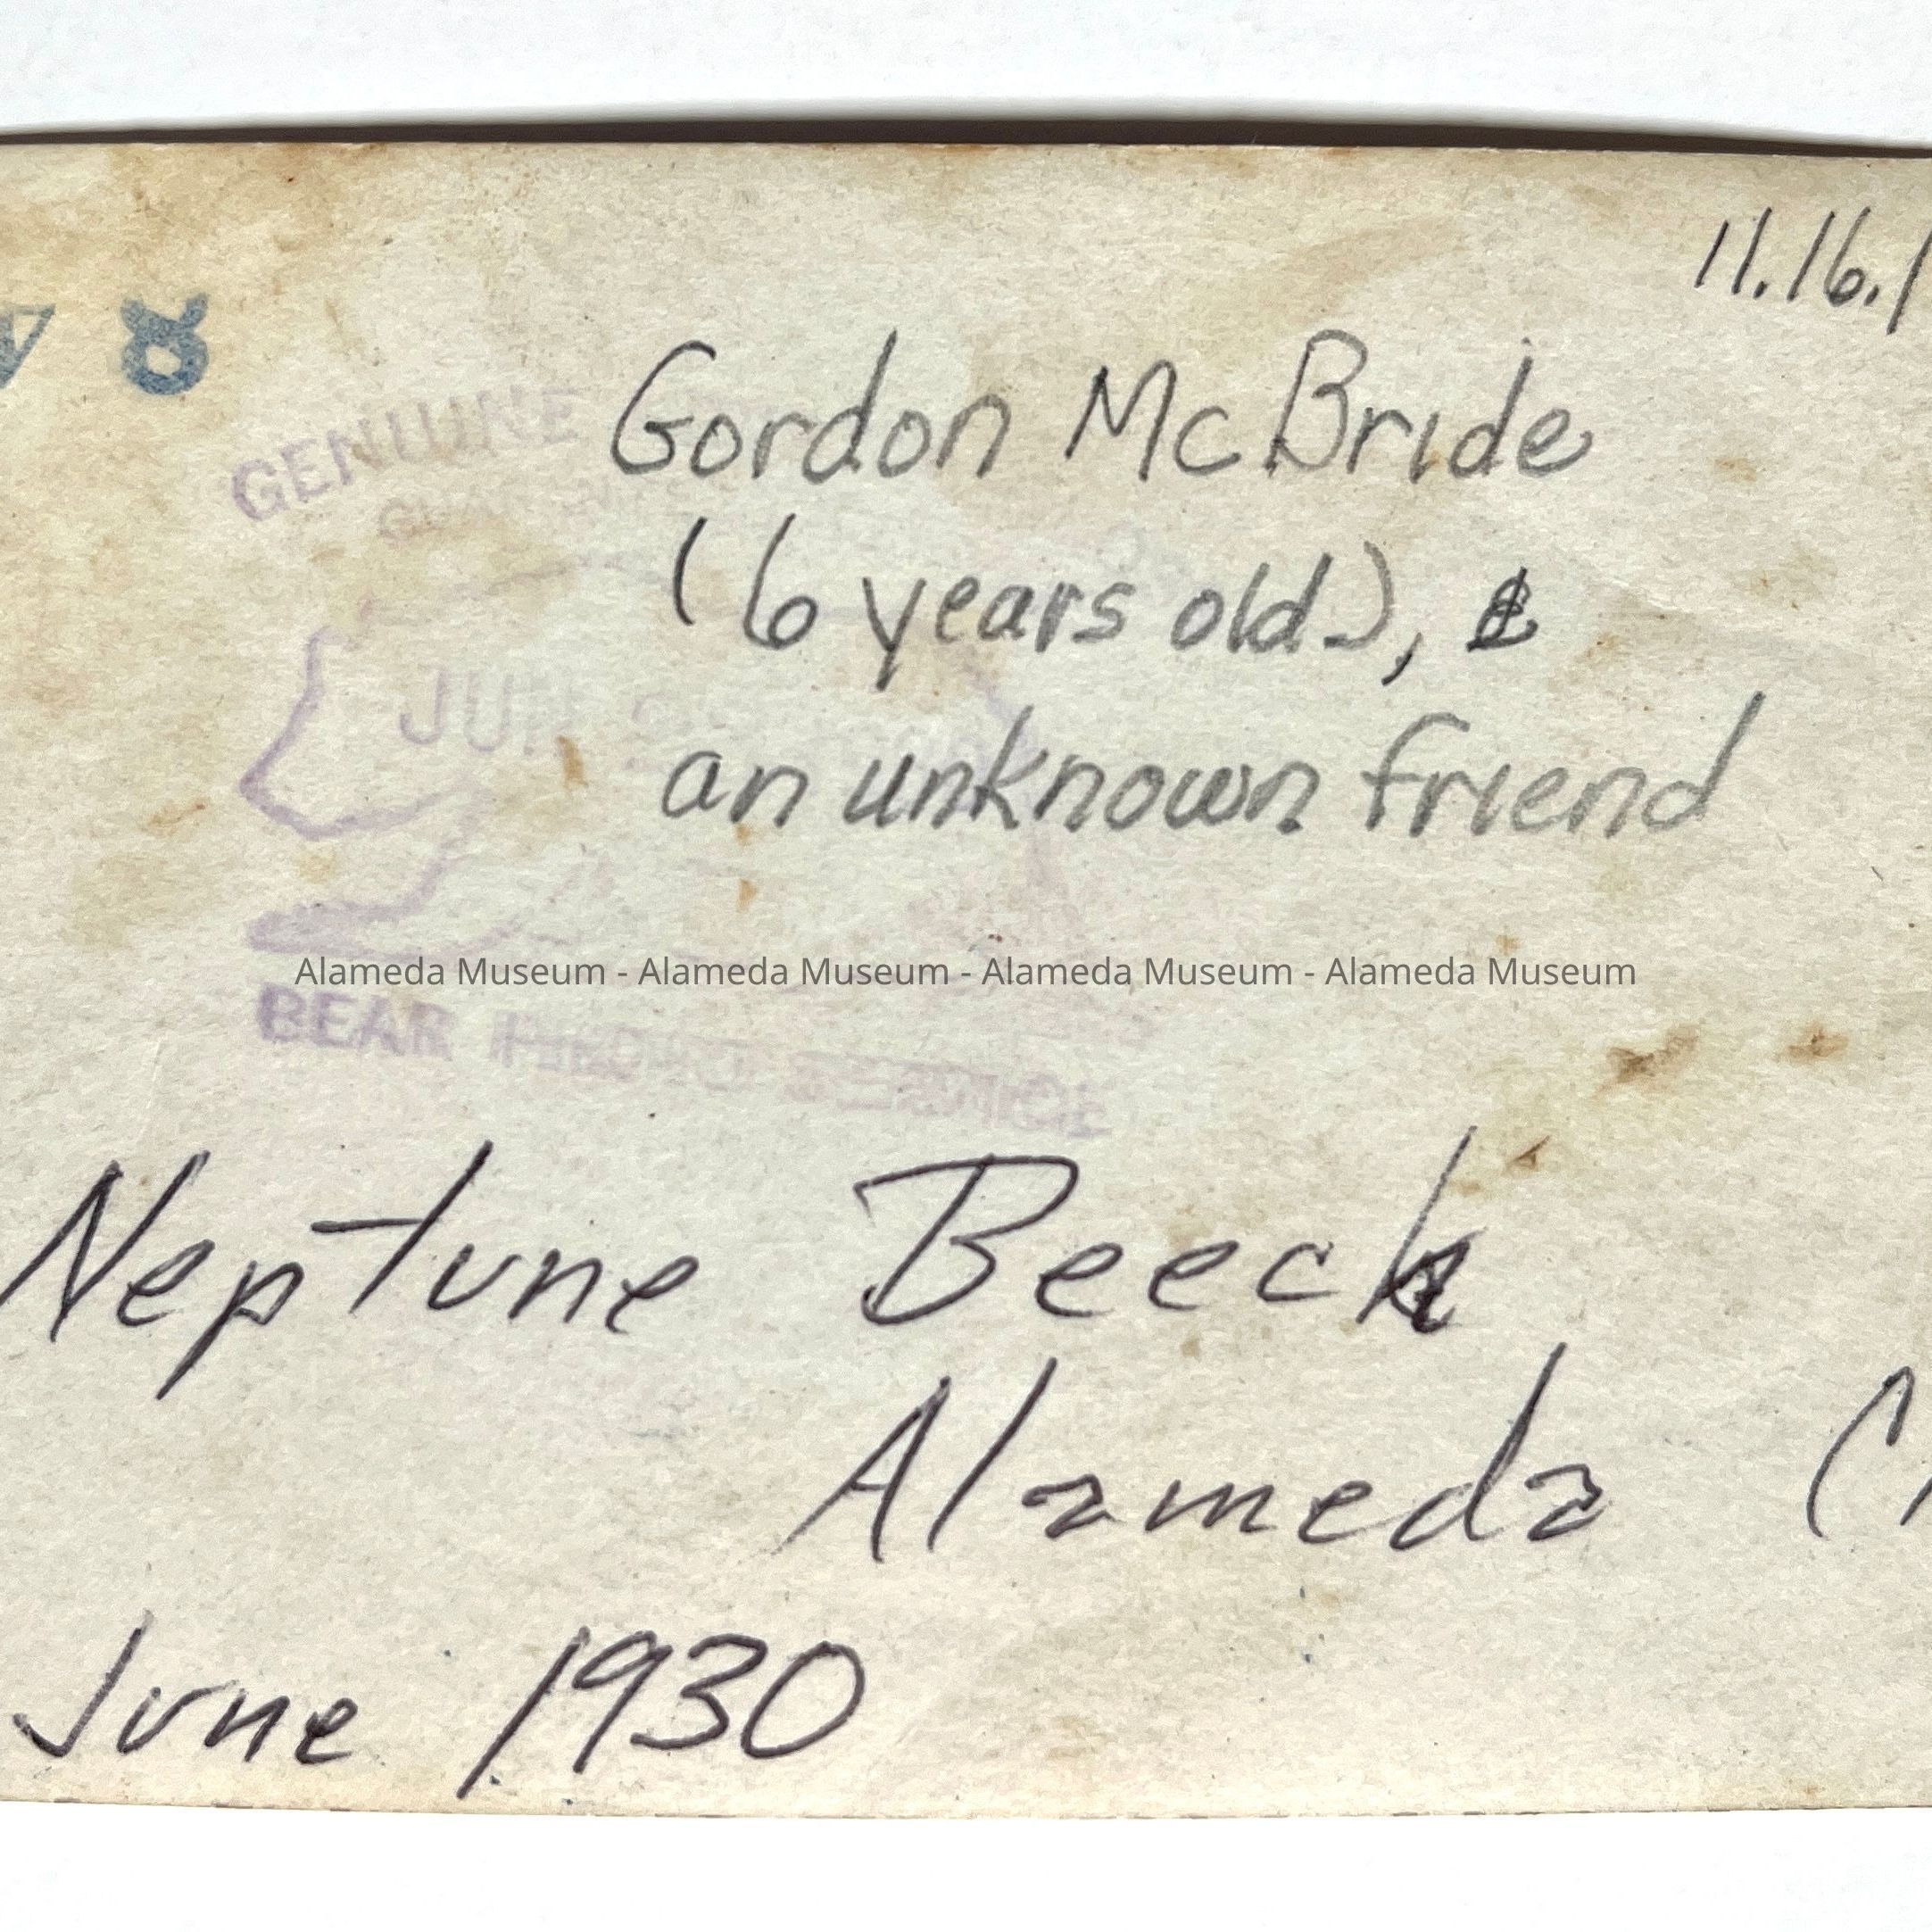 11.16.1
GENUINE
Gordon McBride
(6 years old), &
JUN
an unknown friend
Alameda Museum - Alameda Museum - Alameda Museum - Alameda Museum
BEAR PHOTO SERVICE
Neptune Beech
Alameda
June 1930